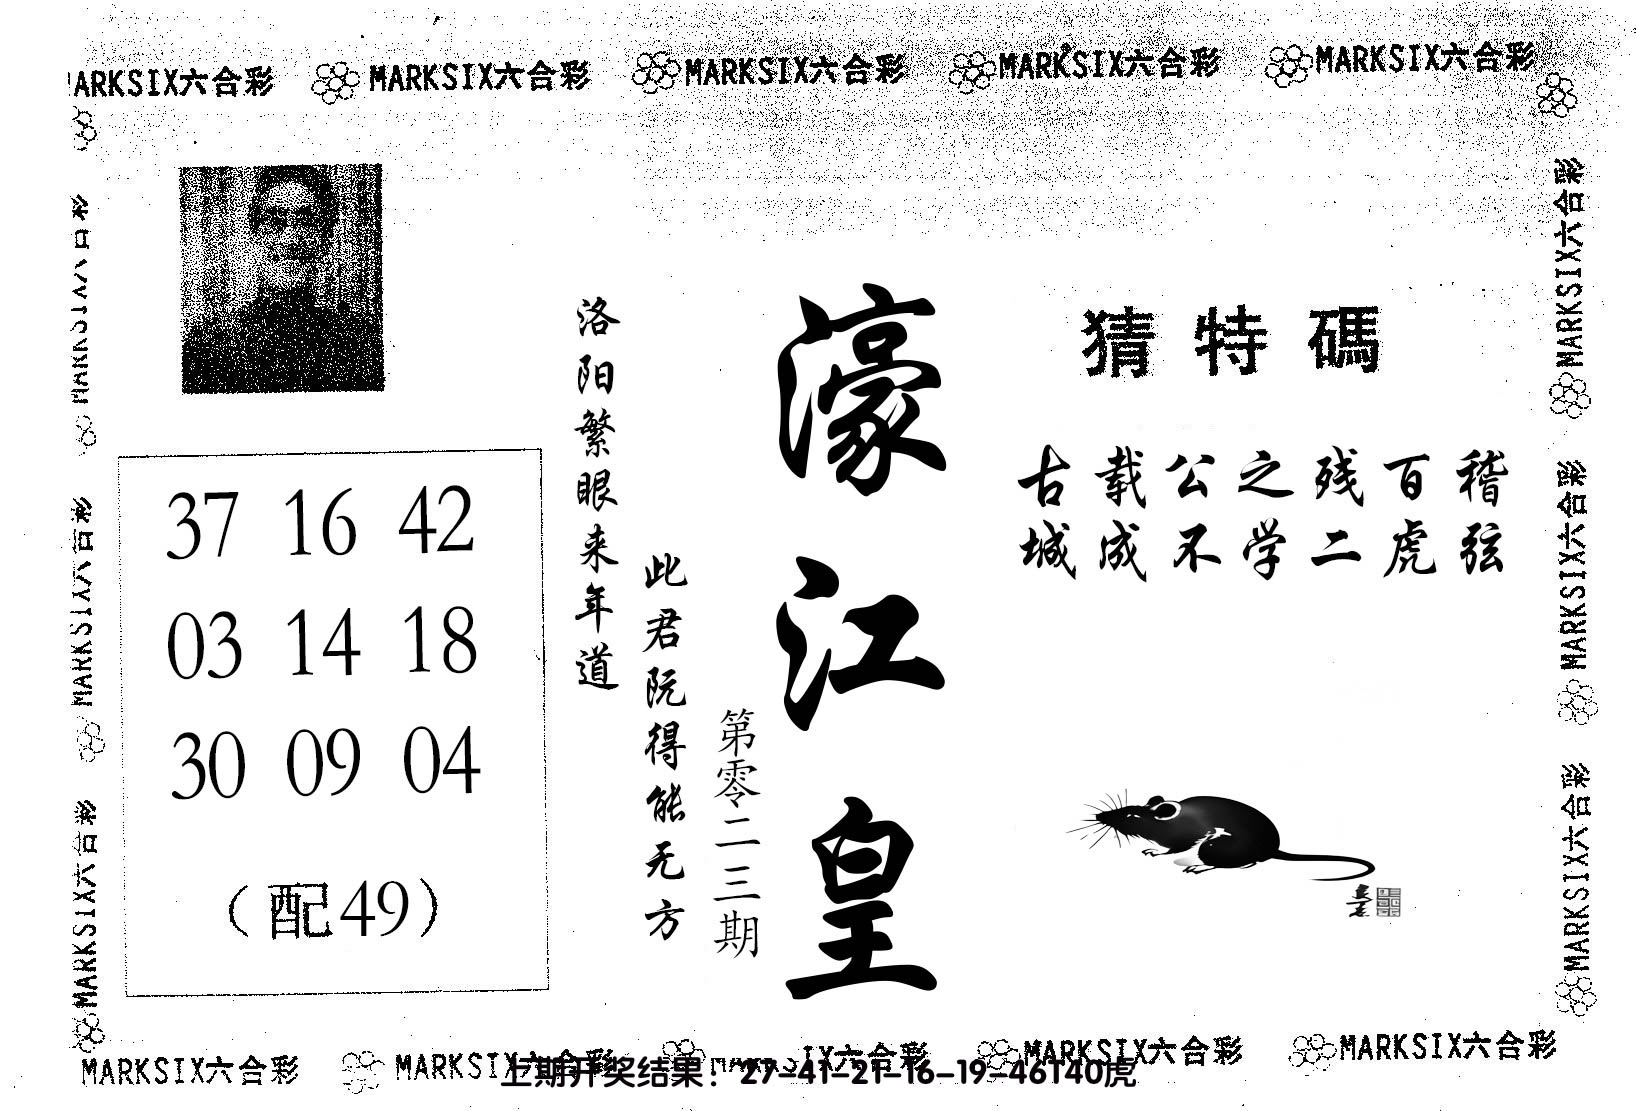 MARKSIX六合彩 MARKSIX六合彩 MARKSIX六合彩 MARKSIX六合彩 MARKSIX六合彩
MARKSIX六合彩
MARKSIX六合彩
MARKSIX六合彩
猜特碼
古载公之残百稽
城成不学二虎弦
濠江皇
第零二三期
此君阮得能无方
洛阳繁眼来年道
37 16 42
03 14 18
30 09 04
（配49）
MARKSIX六合彩
MARKSIX六合彩
MARKSIX六合彩
MARKSIX六合彩 MARKSIX六合彩 MARKSIX六合彩 MARKSIX六合彩 MARKSIX六合彩
上期开奖结果：27-41-21-16-19-46T40虎